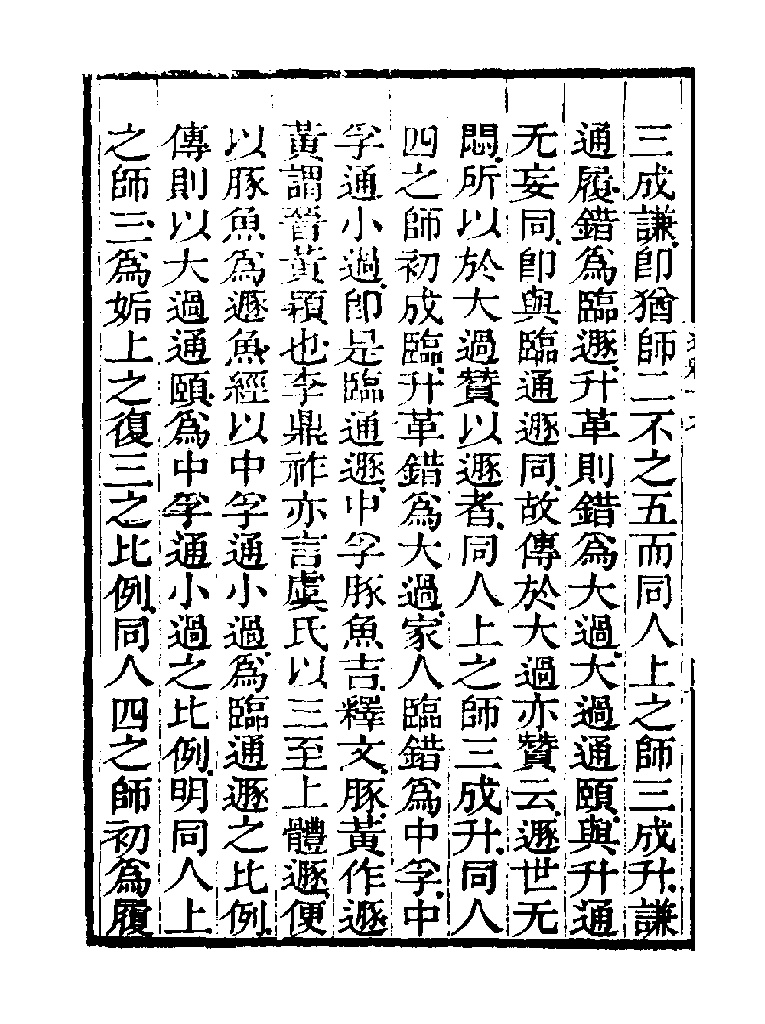 三成謙即猶師二不之五而同人上之師三成升謙
通履錯爲臨遯升革則錯爲大過大過通頤與升通
无妄同即與臨通遯同故傳於大過亦贊云遯世无
悶所以於大過贊以遯者同人上之師三成升同人
四之師初成臨升革錯爲大過家人臨錯爲中孚中
孚通小過即是臨通遯中孚豚魚吉釋文豚黃作遯
黃謂晉黃穎也李鼎祚亦言虞氏以三至上體遯便
以豚魚爲遯魚經以中孚通小過爲臨通遯之比例
傳則以大過通頤爲中孚通小過之比例明同人上
之師三爲姤上之復三之比例同人四之師初爲履